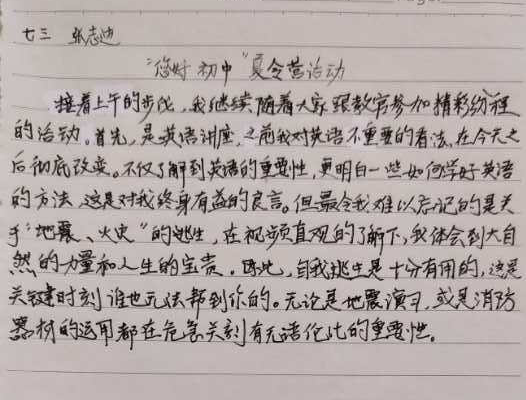 七三 张志迪
“临时初中”夏令营活动
接着上午的步伐,我继续随着大家跟教官参加精彩纷程
的活动。首先,是英语讲座,之前我对英语不重要的看法,在今天之
后彻底改变。不仅了解到英语的重要性,更明白一些如何学好英语
的方法,这是对我终身有益的良言。但最令我难以忘记的是关
于“地震、火灾”的逃生,在视频直观的了解下,我体会到大自
然的力量和人生的宝贵。因此,自我逃生是十分有用的,这是
关键时刻谁也无法帮到你的。无论是地震演习,或是消防
器材的运用都在危急关刻有无语伦比的重要性。